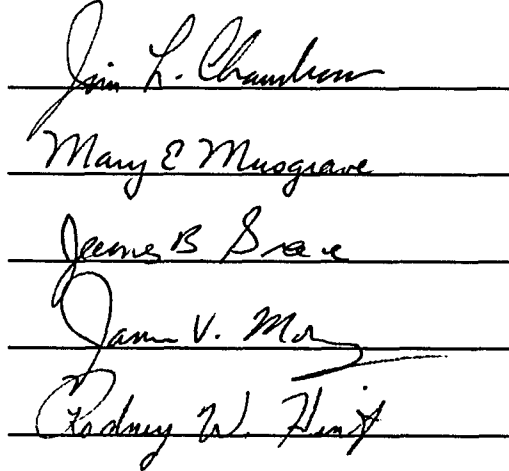 Jim L. Chambers
Mary E Musgrave
James B Grace
James V. Mo
Rodney W. Hint